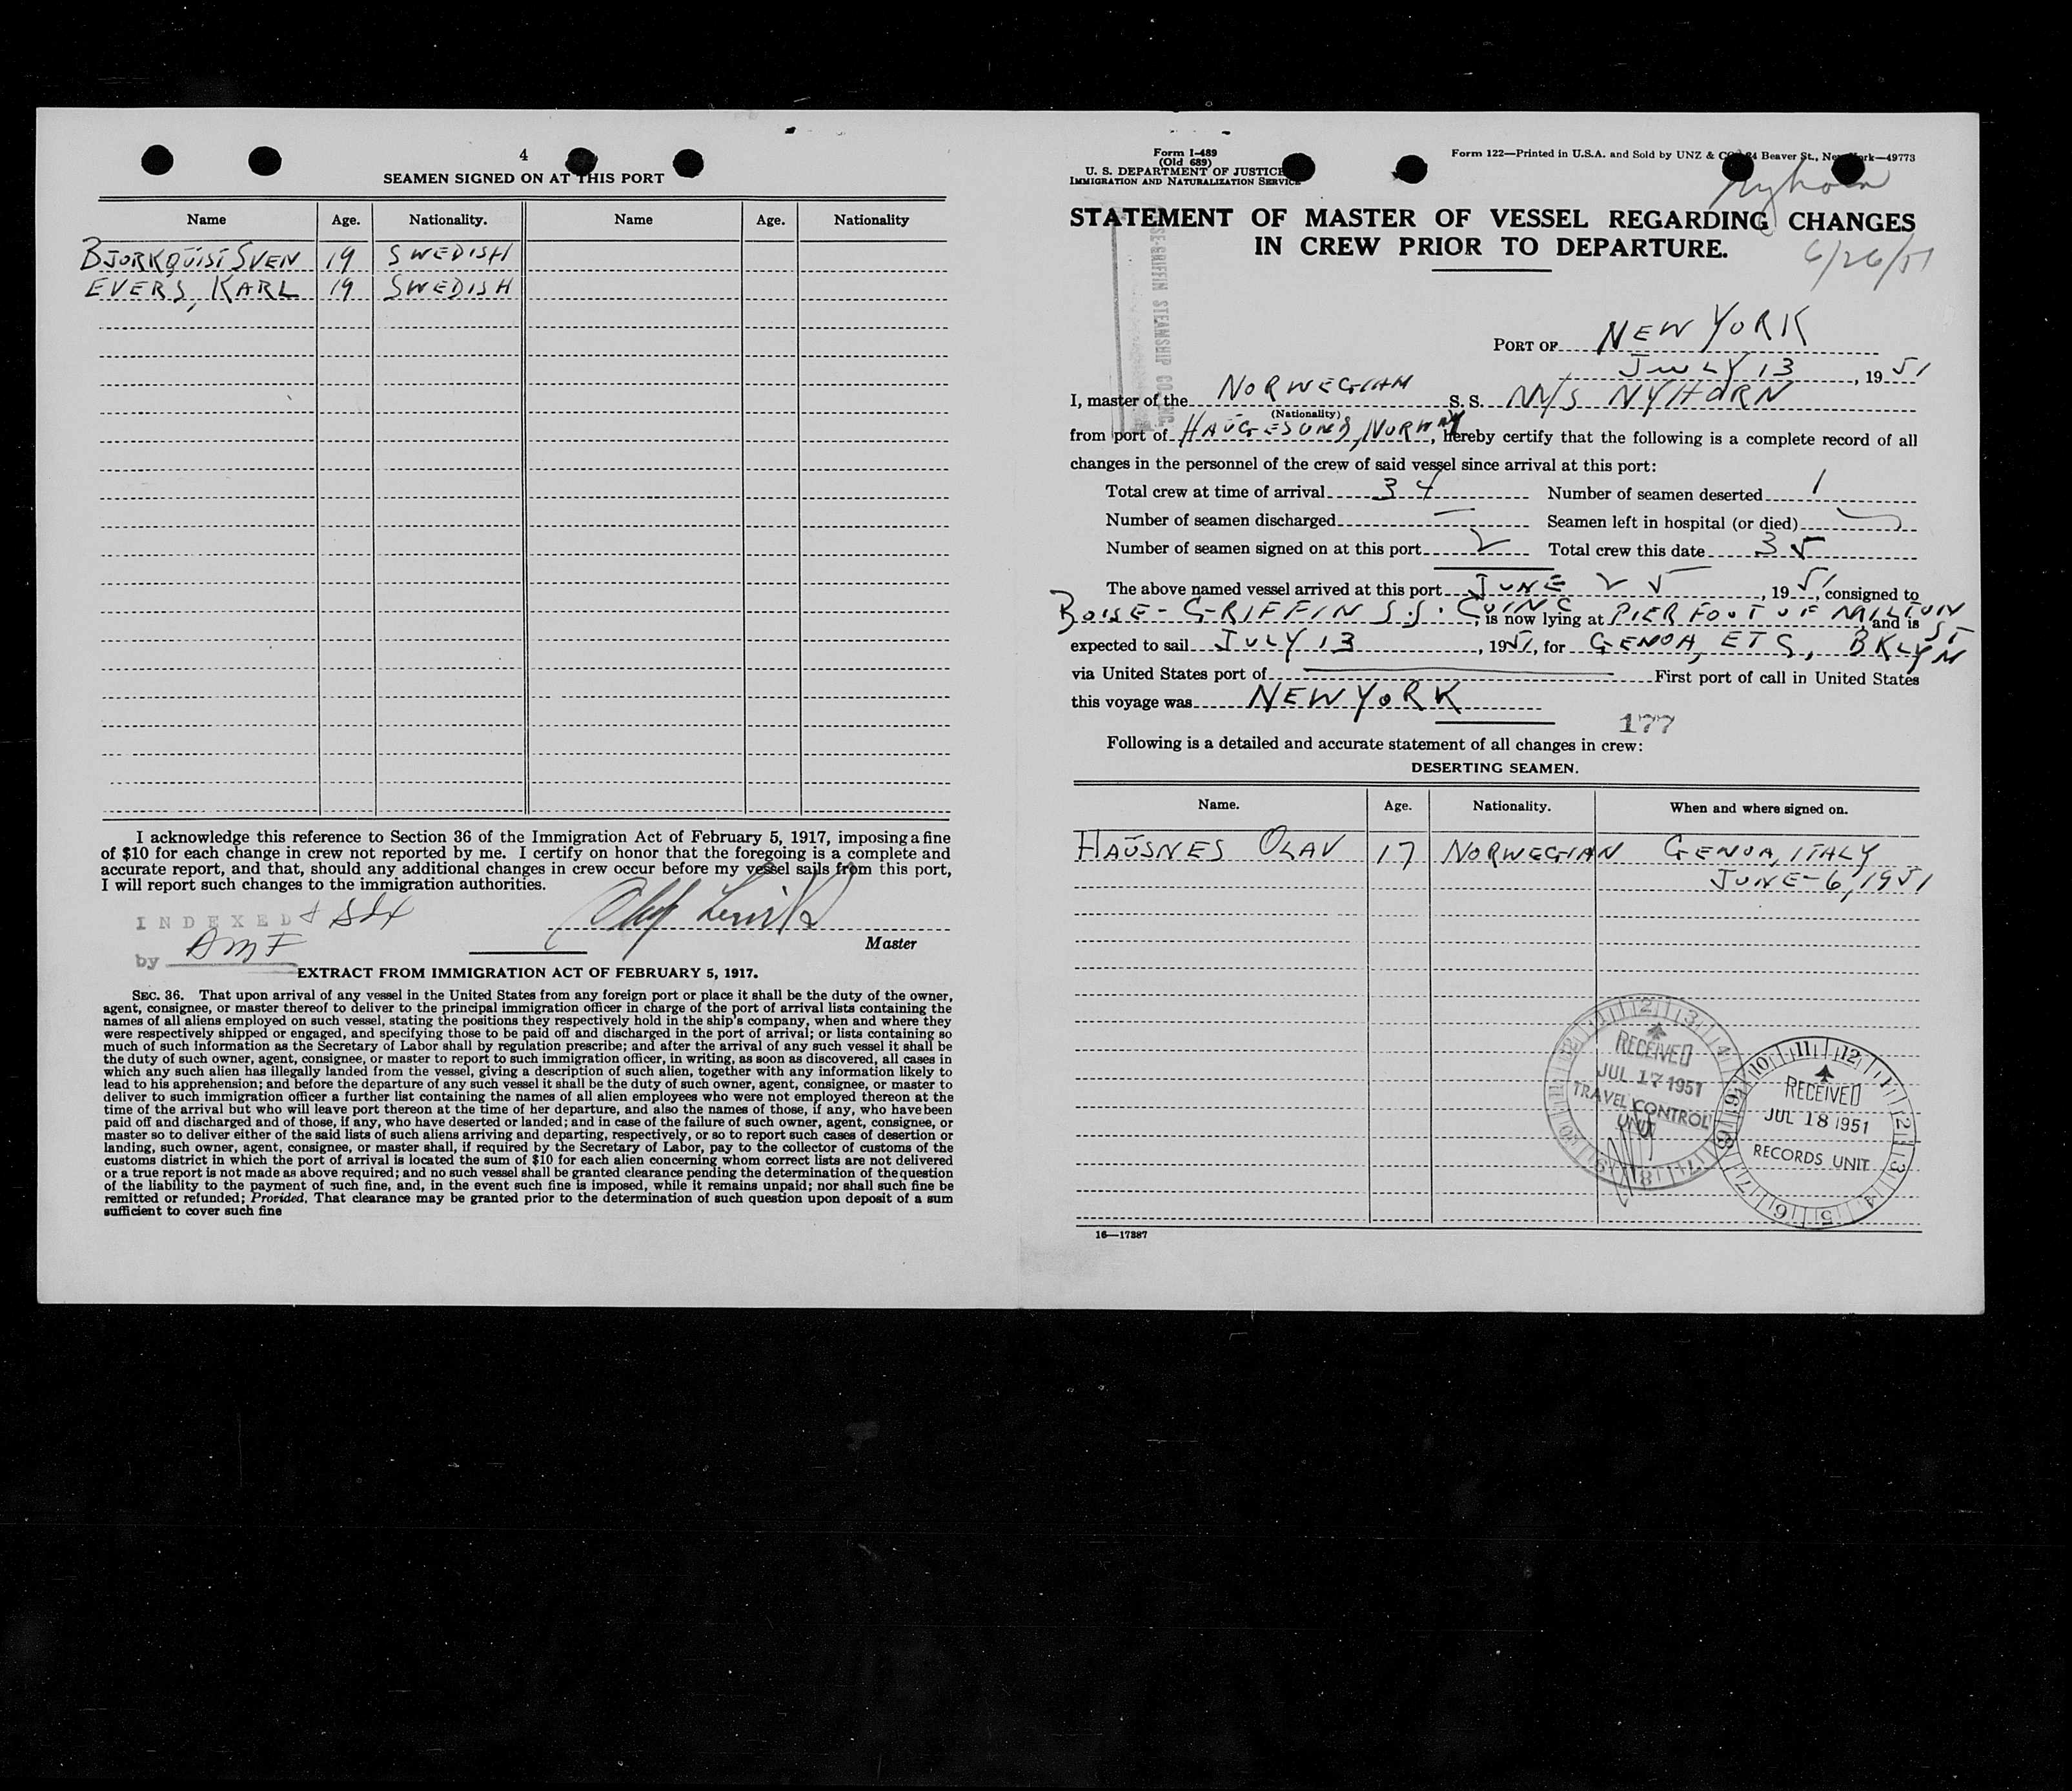 4
SEAMEN SIGNED ON AT THIS PORT
Name Age. Nationality. Name Age. Nationality
BJORKQUIST SVEN 19 SWEDISH
EVERS, KARL 19 SWEDISH
I acknowledge this reference to Section 36 of the Immigration Act of February 5, 1917, imposing a fine
of $10 for each change in crew not reported by me. I certify on honor that the foregoing is a complete and
accurate report, and that, should any additional changes in crew occur before my vessel sails from this port,
I will report such changes to the immigration authorities.
INDEXED
by AMF
Master
EXTRACT FROM IMMIGRATION ACT OF FEBRUARY 5, 1917.
SEC. 36. That upon arrival of any vessel in the United States from any foreign port or place it shall be the duty of the owner,
agent, consignee, or master thereof to deliver to the principal immigration officer in charge of the port of arrival lists containing the
names of all aliens employed on such vessel, stating the positions they respectively hold in the ship's company, when and where they
were respectively shipped or engaged, and specifying those to be paid off and discharged in the port of arrival; or lists containing so
much of such information as the Secretary of Labor shall by regulation prescribe; and after the arrival of any such vessel it shall be
the duty of such owner, agent, consignee, or master to report to such immigration officer, in writing, as soon as discovered, all cases in
which any such alien has illegally landed from the vessel, giving a description of such alien, together with any information likely to
lead to his apprehension; and before the departure of any such vessel it shall be the duty of such owner, agent, consignee, or master to
deliver to such immigration officer a further list containing the names of all alien employees who were not employed thereon at the
time of the arrival but who will leave port thereon at the time of her departure, and also the names of those, if any, who have been
paid off and discharged and of those, if any, who have deserted or landed; and in case of the failure of such owner, agent, consignee, or
master so to deliver either of the said lists of such aliens arriving and departing, respectively, or so to report such cases of desertion or
landing, such owner, agent, consignee, or master shall, if required by the Secretary of Labor, pay to the collector of customs of the
customs district in which the port of arrival is located the sum of $10 for each alien concerning whom correct lists are not delivered
or a true report is not made as above required; and no such vessel shall be granted clearance pending the determination of the question
of the liability to the payment of such fine, and, in the event such fine is imposed, while it remains unpaid; nor shall such fine be
remitted or refunded; Provided, That clearance may be granted prior to the determination of such question upon deposit of a sum
sufficient to cover such fine
Form I-489
(Old 689)
U. S. DEPARTMENT OF JUSTICE
IMMIGRATION AND NATURALIZATION SERVICE
Form 122—Printed in U.S.A. and Sold by UNZ & CO. 24 Beaver St., New York—49773
Nyhorn
STATEMENT OF MASTER OF VESSEL REGARDING CHANGES
IN CREW PRIOR TO DEPARTURE.
6/26/51
GRIFFIN STEAMSHIP CO. INC.
PORT OF NEW YORK
JULY 13, 1951
I, master of the NORWEGIAN S. S. M/S NYHORN
(Nationality)
from port of HAUGESUND, NORWAY, hereby certify that the following is a complete record of all
changes in the personnel of the crew of said vessel since arrival at this port:
Total crew at time of arrival 34 Number of seamen deserted 1
Number of seamen discharged — Seamen left in hospital (or died) —
Number of seamen signed on at this port 2 Total crew this date 35
The above named vessel arrived at this port JUNE 25, 1951, consigned to
BOISE-GRIFFIN S.S. CO INC, is now lying at PIER FOOT OF MILTON ST and is
expected to sail JULY 13, 1951, for GENOA, ETC, BKLYN
via United States port of — First port of call in United States
this voyage was NEW YORK
177
Following is a detailed and accurate statement of all changes in crew:
DESERTING SEAMEN.
Name. Age. Nationality. When and where signed on.
HAUSNES OLAV 17 NORWEGIAN GENOA, ITALY
JUNE-6, 1951
RECEIVED
JUL 17 1951
TRAVEL CONTROL
UNIT
RECEIVED
JUL 18 1951
RECORDS UNIT
16—17387